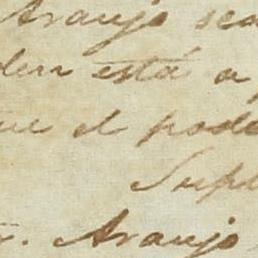 Araujo sea
den está a
que el pode
Sup
r. Araujo